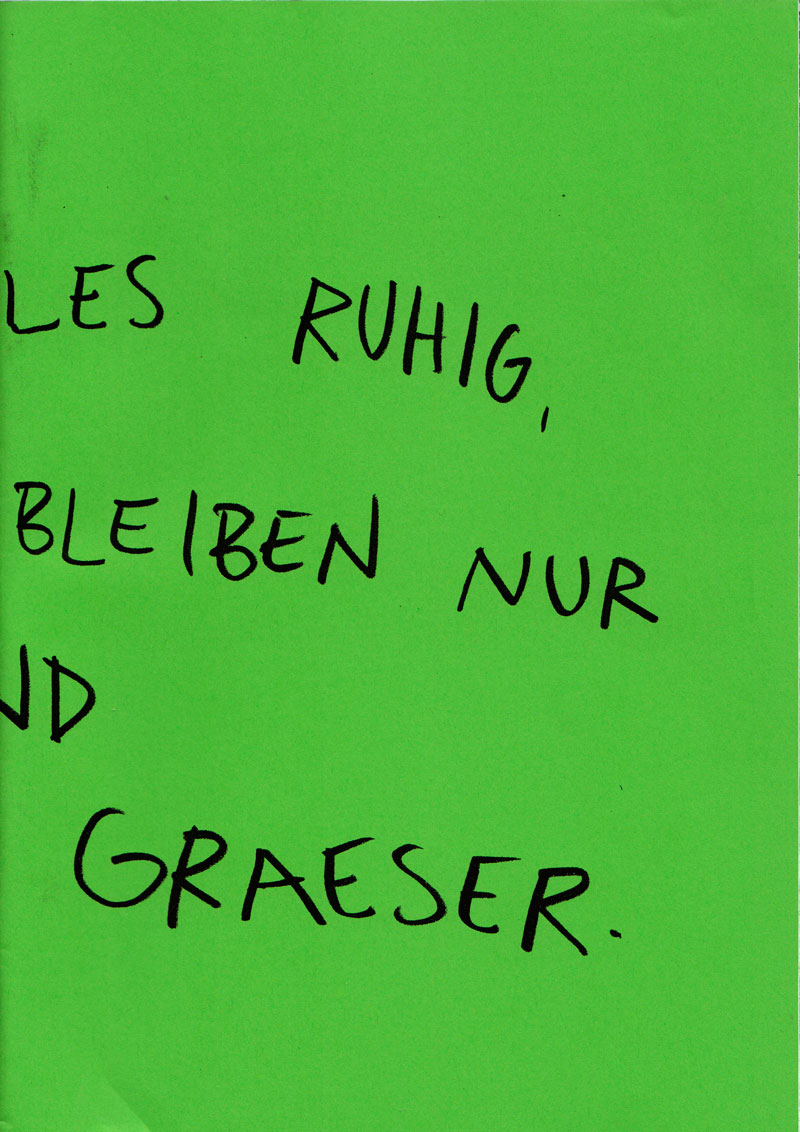 LES RUHIG,
BLEIBEN NUR
ND
GRAESER.